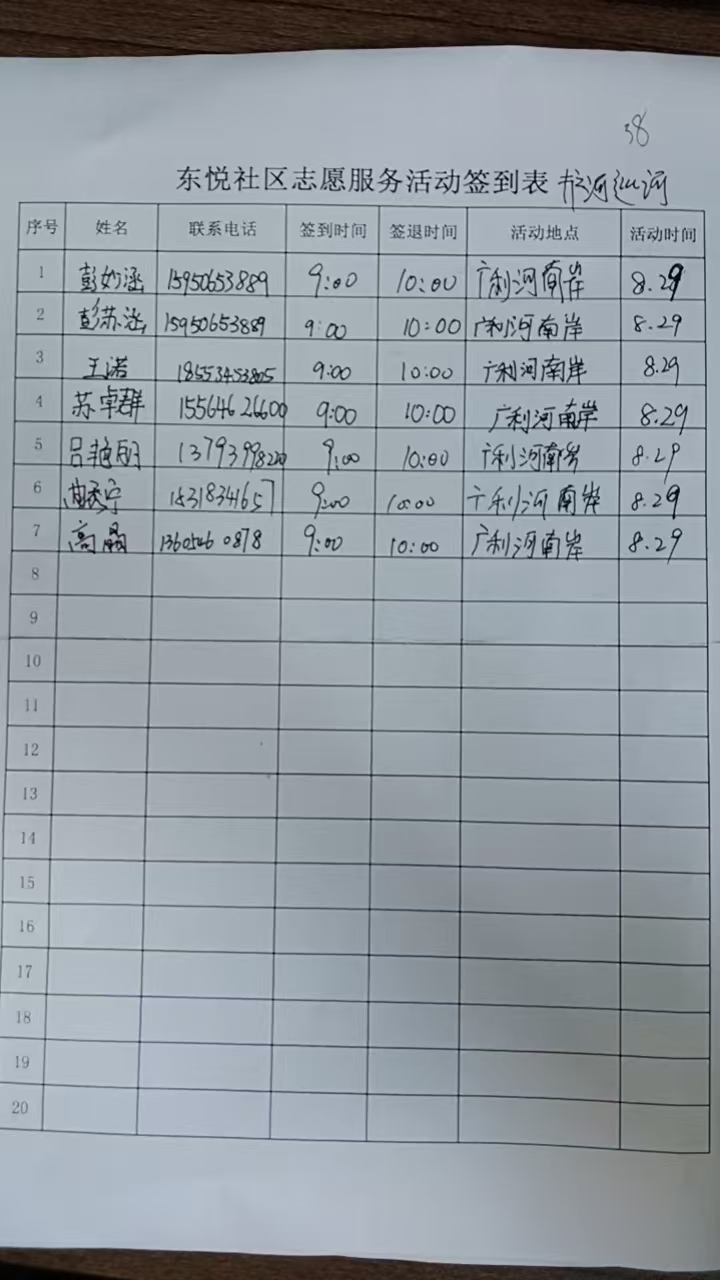 38
东悦社区志愿服务活动签到表 河巡河
序号 姓名 联系电话 签到时间 签退时间 活动地点 活动时间
1 彭妙涵 15950653889 9:00 10:00 广利河南岸 8.29
2 彭苏涵 15950653889 9:00 10:00 广利河南岸 8.29
3 王诺 18553453805 9:00 10:00 广利河南岸 8.29
4 苏卓群 15564626600 9:00 10:00 广利河南岸 8.29
5 吕艳 9:00 10:00 广利河南岸 8.29
6 宁 18318341657 9:00 10:00 广利河南岸 8.29
7 高晶 13605460878 9:00 10:00 广利河南岸 8.29
8
9
10
11
12
13
14
15
16
17
18
19
20